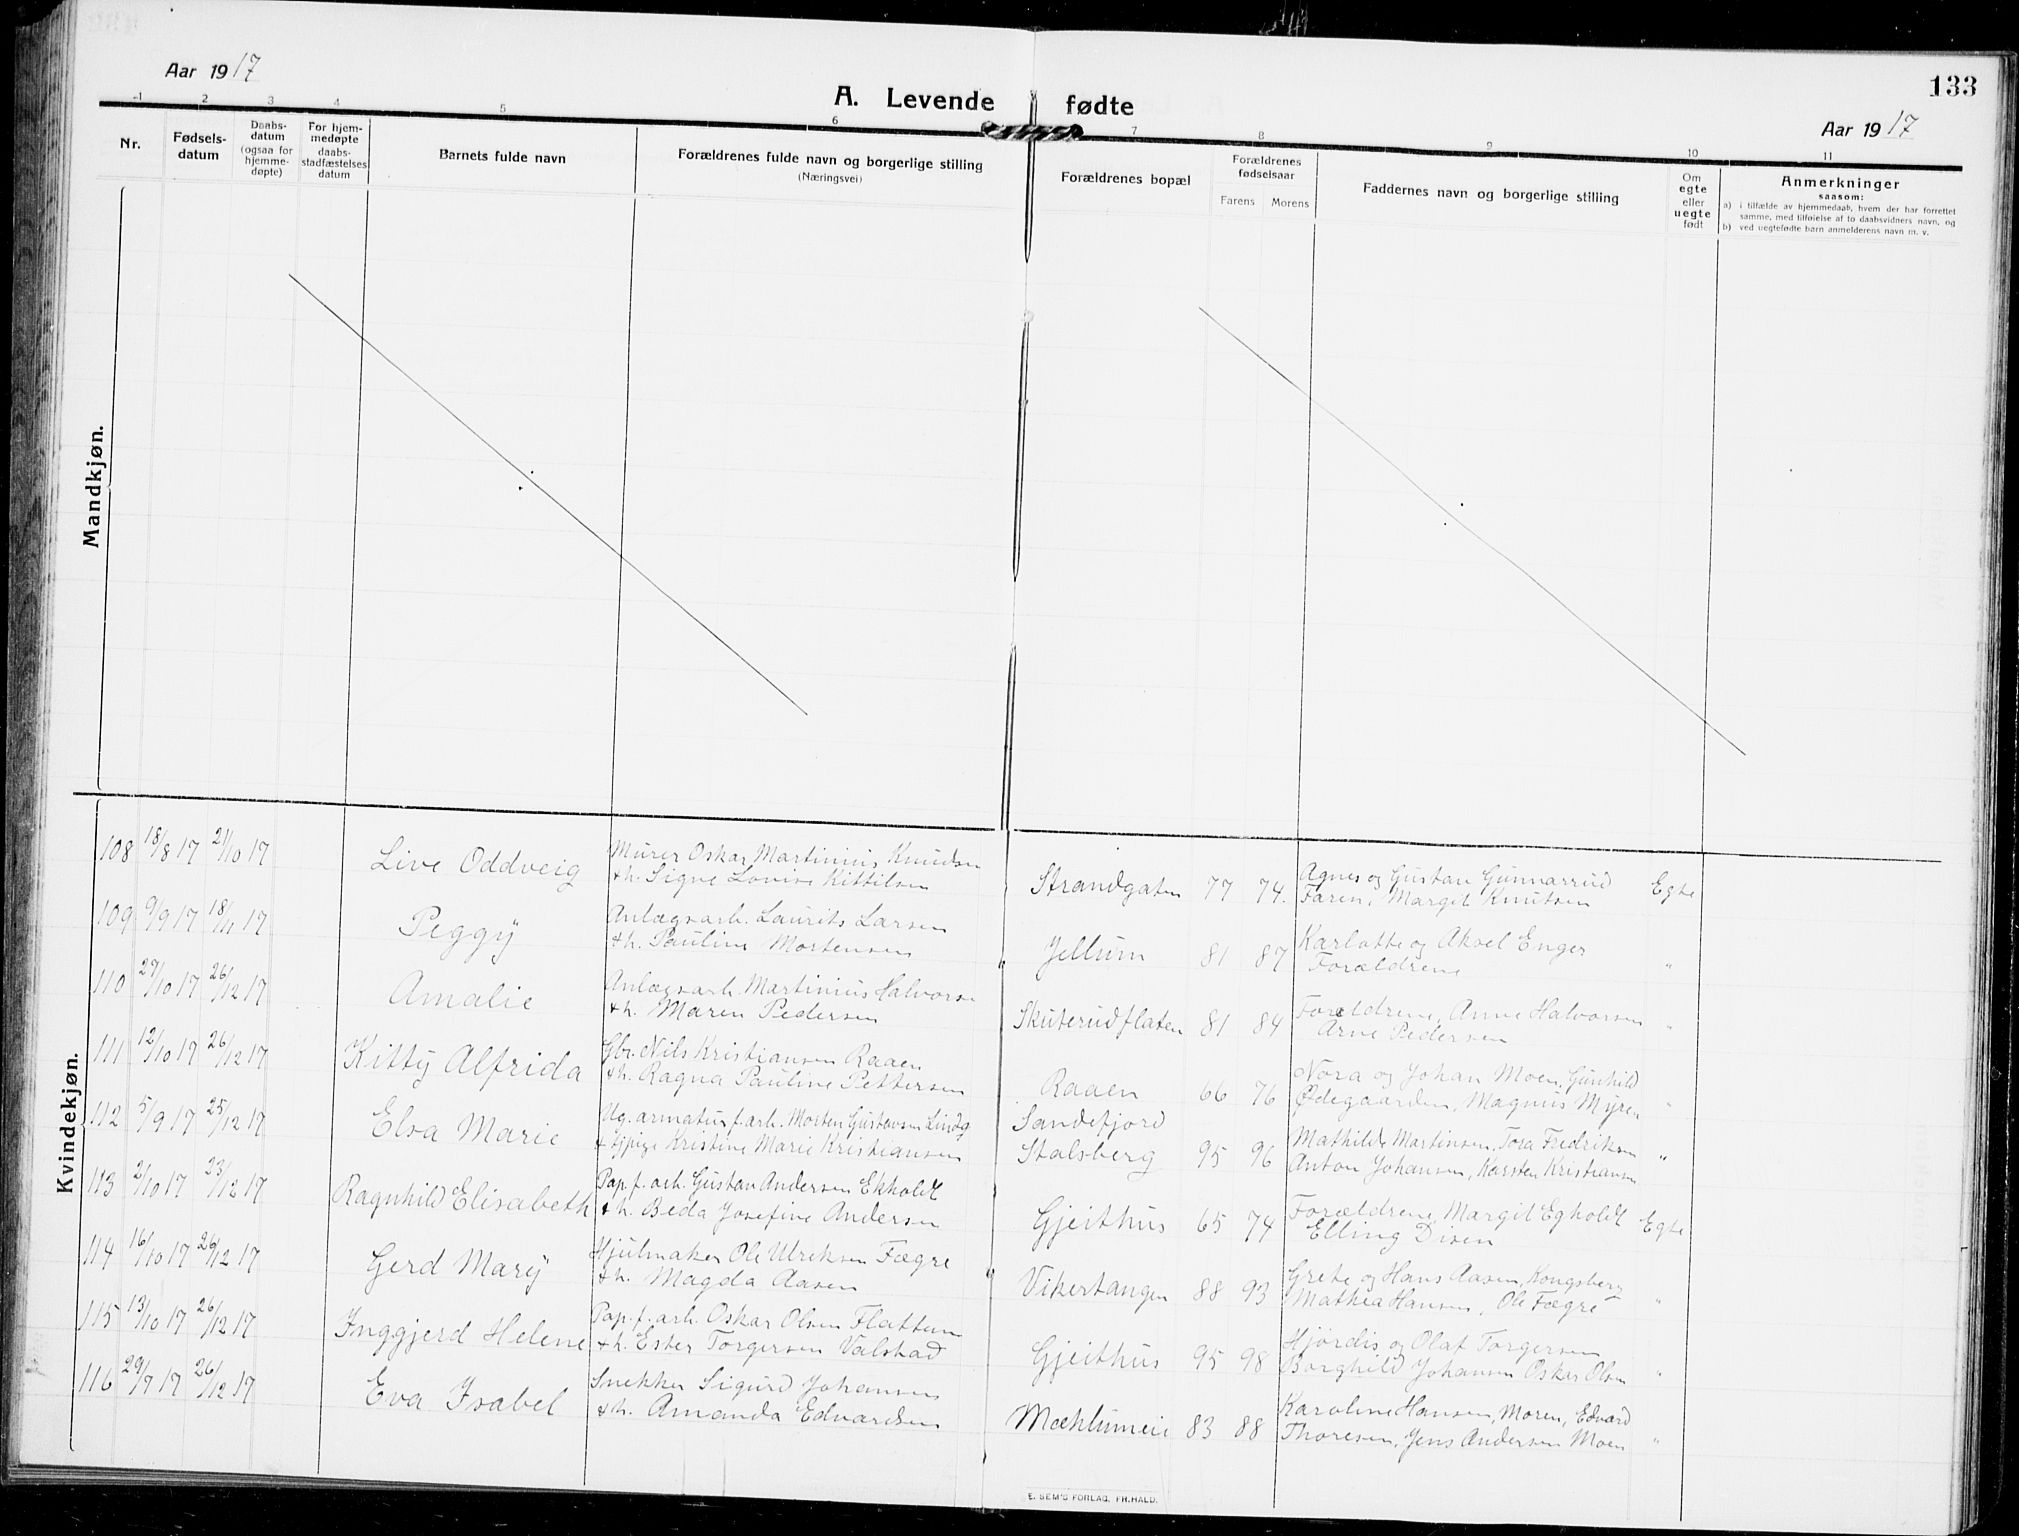 Aar 1917
A. Levende fødte
133
Aar 1917
1 2 3 4 5 6 7 8 9 10 11
Nr.
Fødsels-
datum
Daabs-
datum
(ogsaa for
hjemme-
døpte)
For hjem-
medøpte
daabs-
stadfæstelses
datum
Barnets fulde navn
Forældrenes fulde navn og borgerlige stilling
(Næringsvei)
Forældrenes bopæl
Forældrenes
fødselsaar
Farens Morens
Faddernes navn og borgerlige stilling
Om
egte
eller
uegte
født
Anmerkninger
saasom:
a) i tilfælde av hjemmedaab, hvem der har forrettet
samme, med tilføielse af to daabsvidners navn, og
b) ved uegtefødte barn anmelderens navn m. v.
Mandkjøn.
Kvindekjøn.
108 18/8 17 21/10 17 Live Oddveig
Murer Oskar Martinius Knudsen
+ h. Signe Lovise Kittilsen
Strandgaten 77 74.
Agnes og Gustav Gunnarrud
Faren, Margit Knutsen
Egte
109 9/9 17 18/11 17 Peggy
Anlægsarb. Laurits Larsen
+ h. Pauline Mortensen
Jellum 81 87
Karlotte og Aksel Enger
Forældrene
"
110 29/10 17 26/12 17 Amalie
Anlægsarb. Martinius Halvorsen
+ h. Maren Pedersen
Skuterudflaten 81 84
Forældrene, Anne Halvorsen
Arne Pedersen
"
111 12/10 17 26/12 17 Kitty Alfrida
Gbr. Nils Kristiansen Raaen
+ h. Ragna Pauline Pettersen
Raaen 66 76
Nora og Johan Moen, Gunhild
Ødegaarden, Magnus Myren
"
112 5/9 17 25/12 17 Elsa Marie
Ug. armaturf.arb. Morten Gustavsen Lindg
+ tj.pige Kristine Marie Kristiansen
Sandefjord
Stalsberg 95 96
Mathilde Martinsen, Tora Fredriksen
Anton Johansen, Karsten Kristiansen
"
113 2/10 17 23/12 17 Ragnhild Elisabeth
Pap.f. arb. Gustav Andersen Ekholdt
+ h. Beda Josefine Andersen
Gjeithus 65 74
Forældrene, Margit Egholdt
Elling Disen
Egte
114 16/10 17 26/12 17 Gerd Mary
Hjulmaker Ole Ulriksen Fægre
+ h. Magda Aasen
Vikertangen 88 93
Grete og Hans Aasen, Kongsberg
Mathea Hansen, Ole Fægre
"
115 13/10 17 26/12 17 Inggjerd Helene
Pap.f. arb. Oskar Olsen Flattum
+ h. Ester Torgersen Valstad
Gjeithus 95 98
Hjørdis og Olaf Torgersen
Borghild Johansen Oskar Olsen
"
116 29/7 17 26/12 17 Eva Isabel
Snekker Sigurd Johansen
+ h. Amanda Edvardsen
Mæhlumeie 83 88
Karoline Hansen, Moren, Edvard
Thoresen, Jens Andersen Moen
"
E. SEM'S FORLAG, FR.HALD.